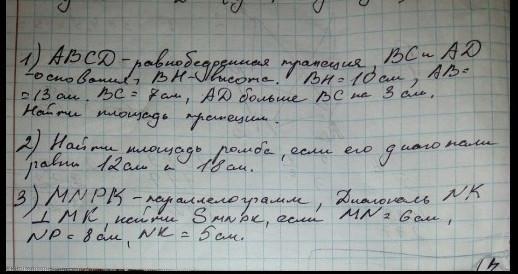 1) ABCD - равнобедренная трапеция, BC и AD
- основания, BH - высота. BH = 10 см, AB =
= 13 см. BC = 7 см, AD больше BC на 3 см.
Найти площадь трапеции.
2) Найти площадь ромба, если его диагонали
равны 12 см и 18 см.
3) MNPK - параллелограмм, Диагональ NK
⊥ MK, найти Smnpk, если MN = 6 см,
NP = 8 см, NK = 5 см.